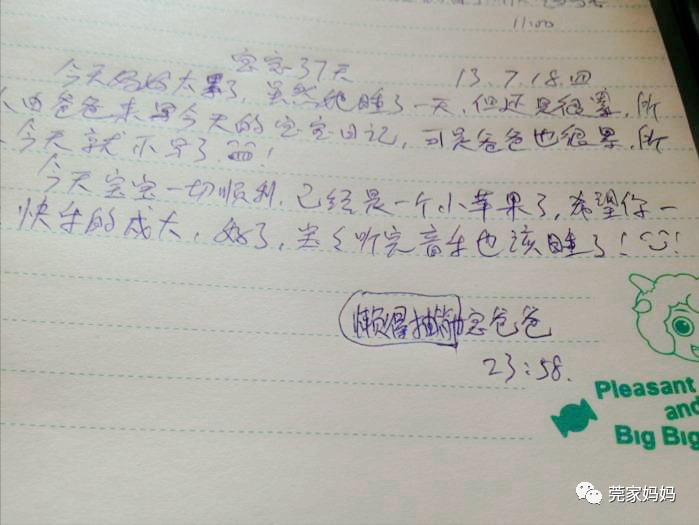 11:00
宝宝37天 13.7.18.四
今天妈妈太累了,虽然她睡了一天,但还是很累,所
以由爸爸来写今天的宝宝日记,可是爸爸也很累,所
以今天就不写了
今天宝宝一切顺利,已经是一个小苹果了,希望你一
快乐的成大,好了,宝宝听完音乐也该睡了!
懒得抽筋 宝爸爸
23:58.
Pleasant
and
Big Big
莞家妈妈